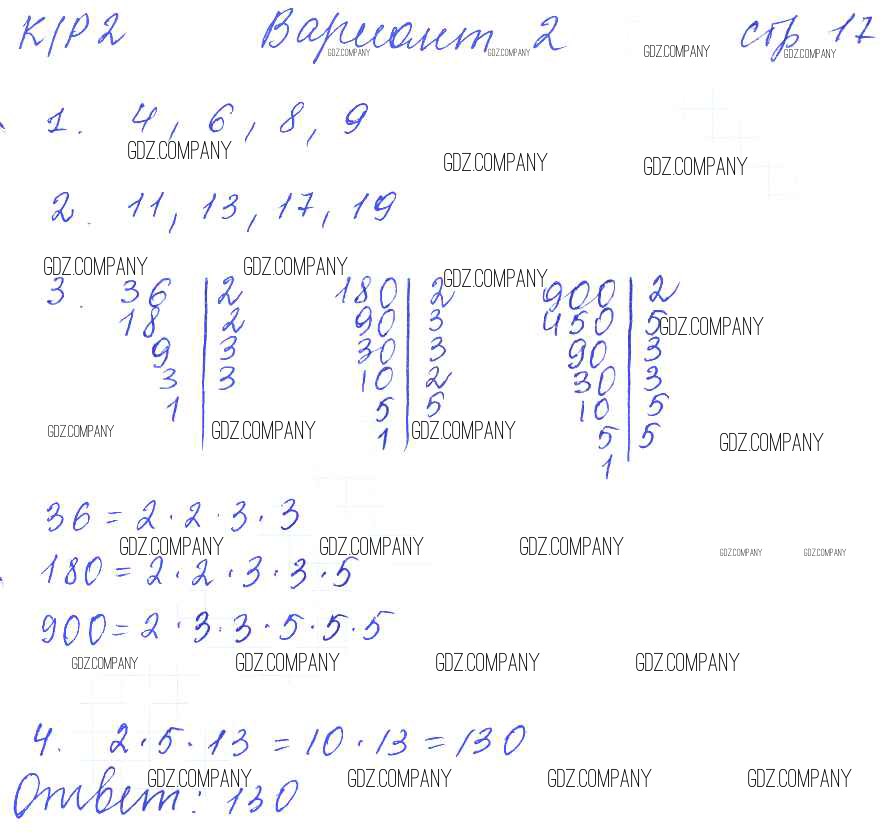 К/Р 2 Вариант 2 стр 17
GDZ.COMPANY GDZ.COMPANY GDZ.COMPANY GDZ.COMPANY
1. 4, 6, 8, 9
GDZ.COMPANY GDZ.COMPANY GDZ.COMPANY
2. 11, 13, 17, 19
GDZ.COMPANY GDZ.COMPANY GDZ.COMPANY
3. 36 | 2 180 | 2 900 | 2
18 | 2 90 | 3 450 | 5 GDZ.COMPANY
9 | 3 30 | 3 90 | 3
3 | 3 10 | 2 30 | 3
1 5 | 5 10 | 5
GDZ.COMPANY GDZ.COMPANY 1 GDZ.COMPANY 5 | 5 GDZ.COMPANY
1
36 = 2 · 2 · 3 · 3
GDZ.COMPANY GDZ.COMPANY GDZ.COMPANY GDZ.COMPANY GDZ.COMPANY
180 = 2 · 2 · 3 · 3 · 5
900 = 2 · 3 · 3 · 5 · 5 · 5
GDZ.COMPANY GDZ.COMPANY GDZ.COMPANY GDZ.COMPANY
4. 2 · 5 · 13 = 10 · 13 = 130
GDZ.COMPANY GDZ.COMPANY GDZ.COMPANY GDZ.COMPANY
Ответ: 130